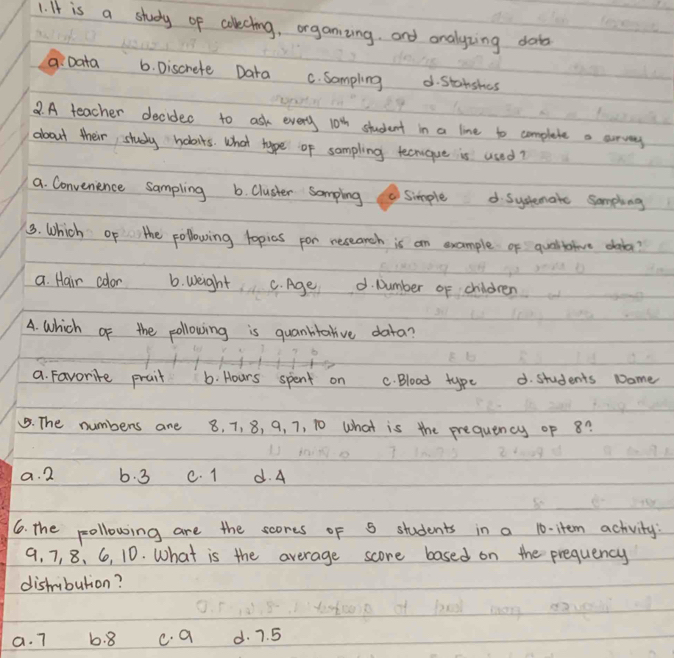 1. It is a study of collecting, organizing, and analyzing data
a. Data b. Discrete Data c. Sampling d. Statistics
2. A teacher decided to ask every 10th student in a line to complete a survey
about their study habits. What type of sampling tecnique is used?
a. Convenience Sampling b. Cluster Sampling c Simple d. Systematic Sampling
3. Which of the following topics for research is an example of qualitative data?
a. Hair color b. weight c. Age d. Number of children
4. Which of the following is quantitative data?
a. Favorite fruit b. Hours spent on c. Blood type d. students Name
5. The numbers are 8, 7, 8, 9, 7, 10 What is the frequency of 8?
a. 2 b. 3 c. 1 d. 4
6. The following are the scores of 5 students in a 10-item activity:
9, 7, 8, 6, 10. What is the average score based on the frequency
distribution?
a. 7 b. 8 c. 9 d. 7.5